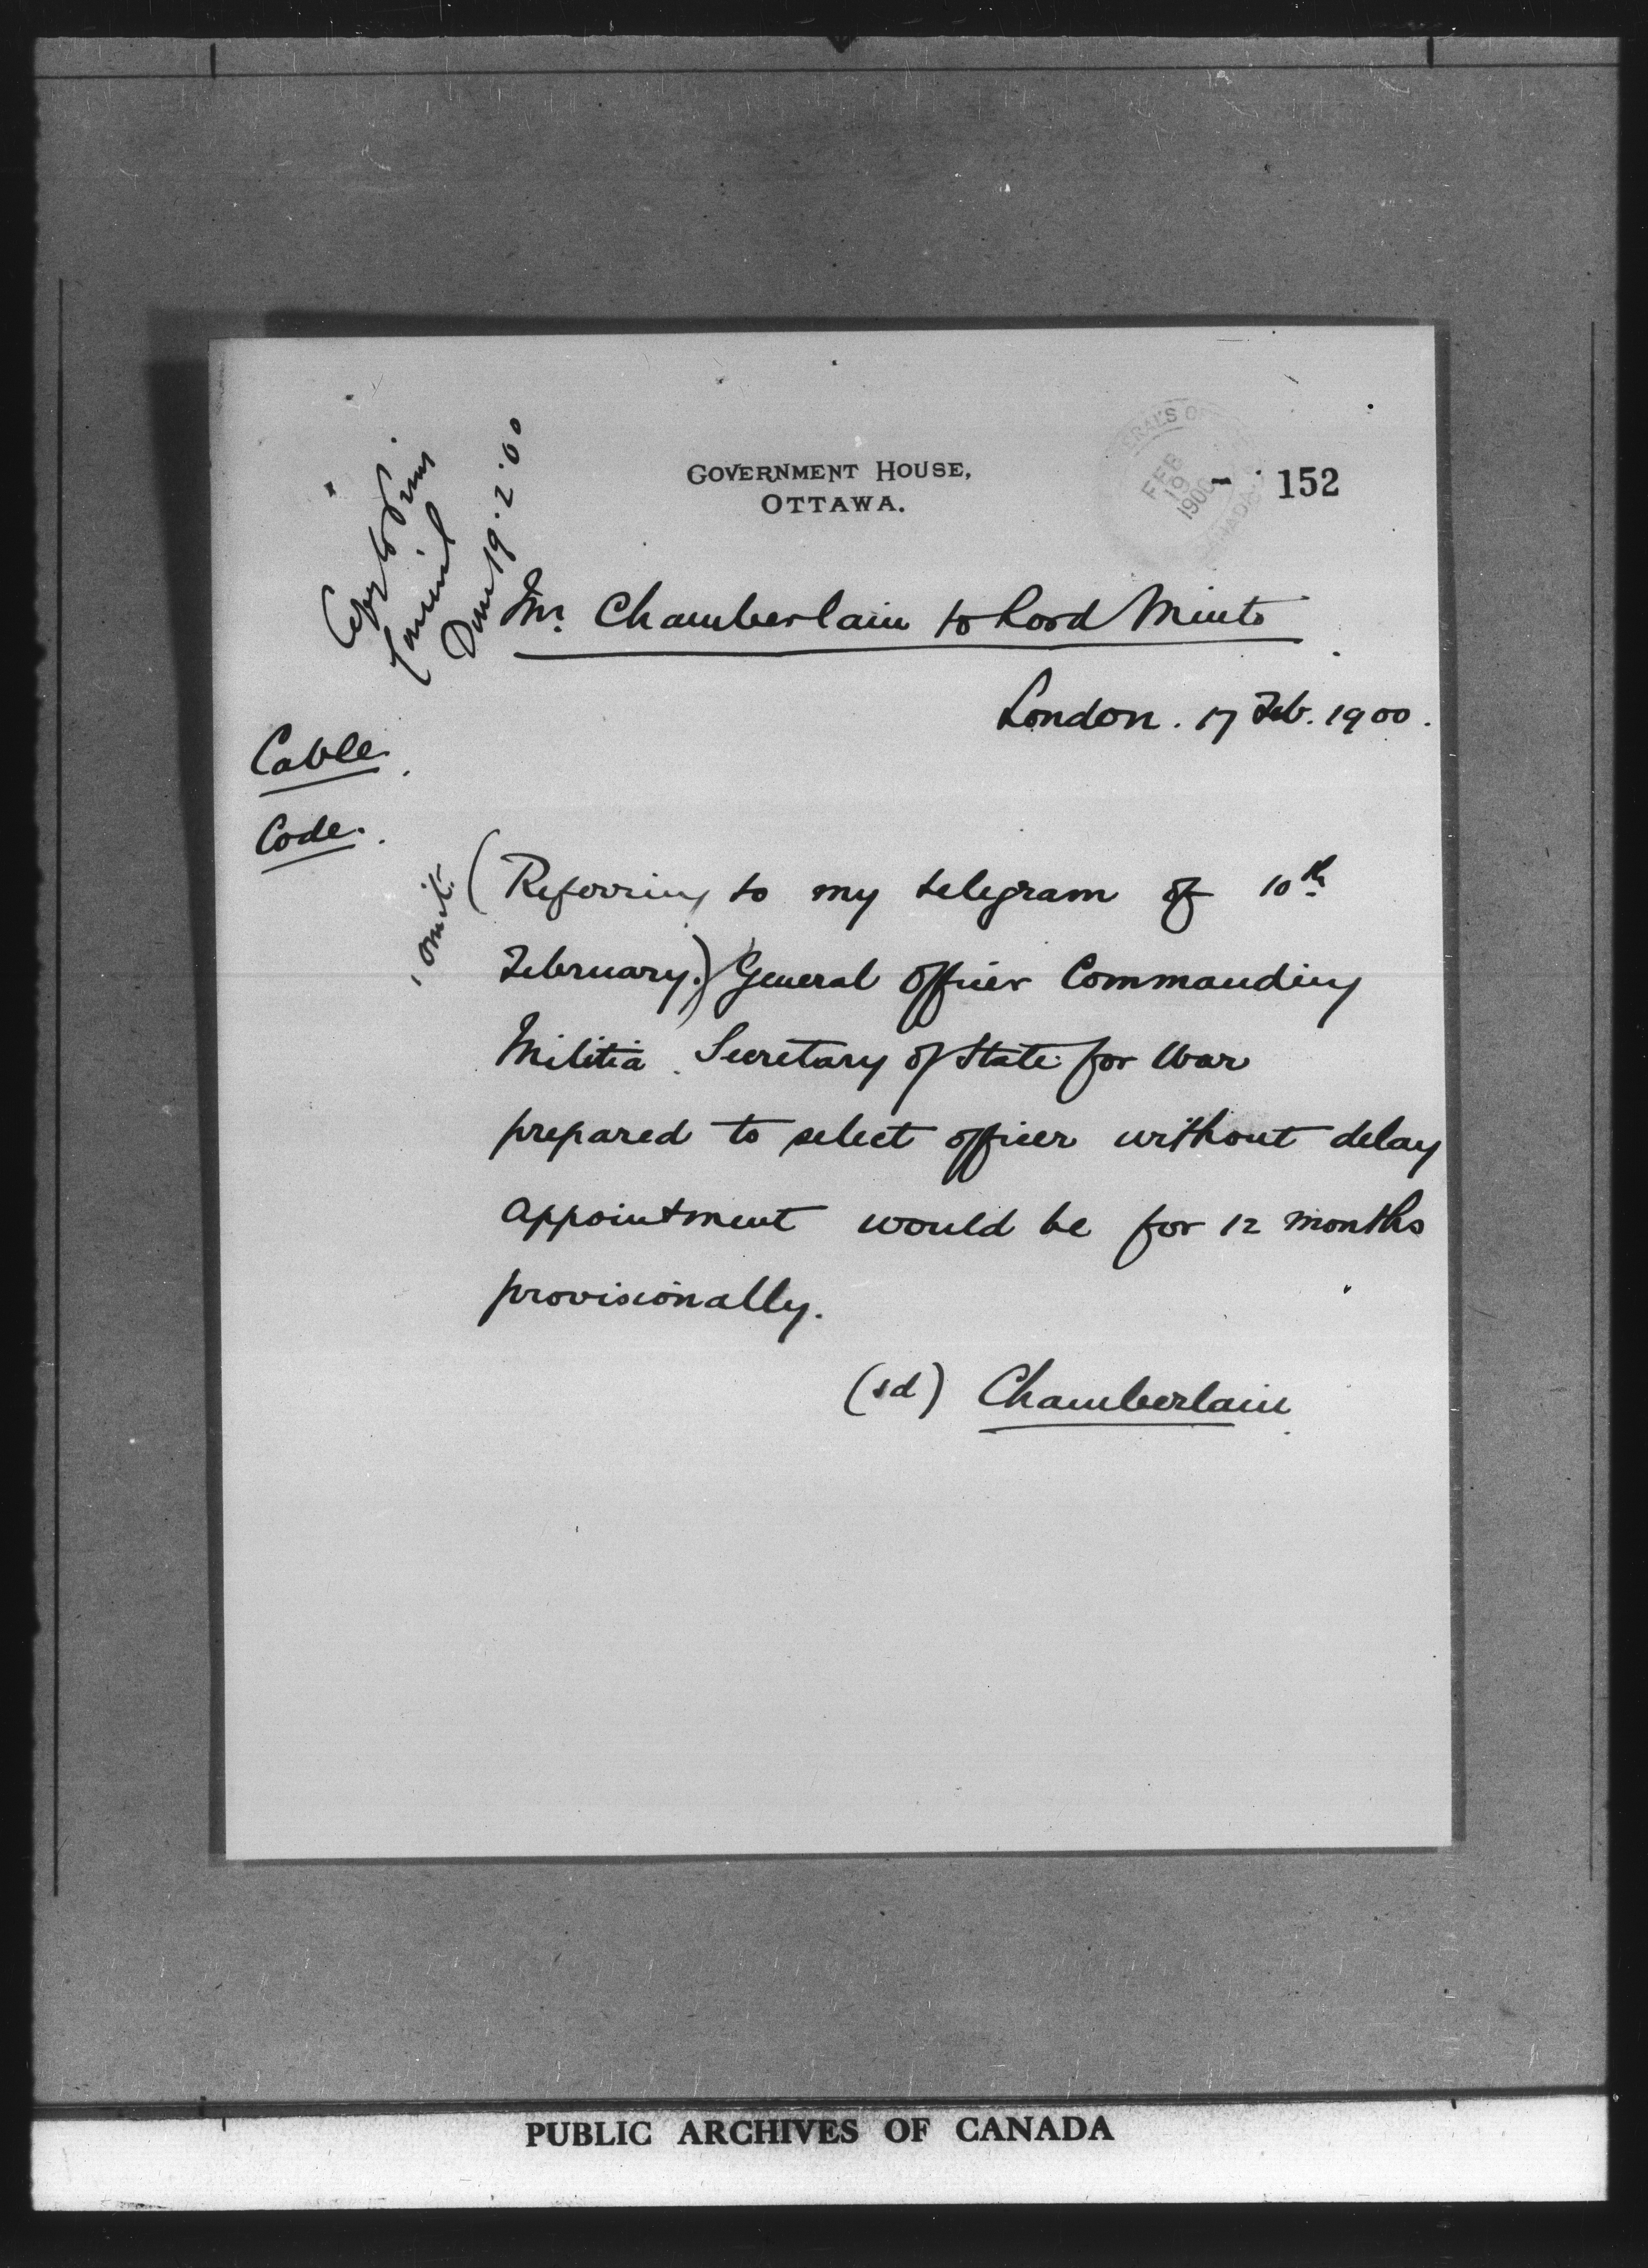 GOVERNMENT HOUSE,
OTTAWA.
ERAL'S OF
FEB
19
1900
NADA
- 152
Copy to Privy
Council
Done 19.2.00
Mr. Chamberlain to Lord Minto
London. 17 Feb. 1900.
Cable.
Code.
omit.
(Referring to my telegram of 10th
February.) General Officer Commanding
Militia. Secretary of State for War
prepared to select officer without delay
appointment would be for 12 months
provisionally.
(sd) Chamberlain
PUBLIC ARCHIVES OF CANADA